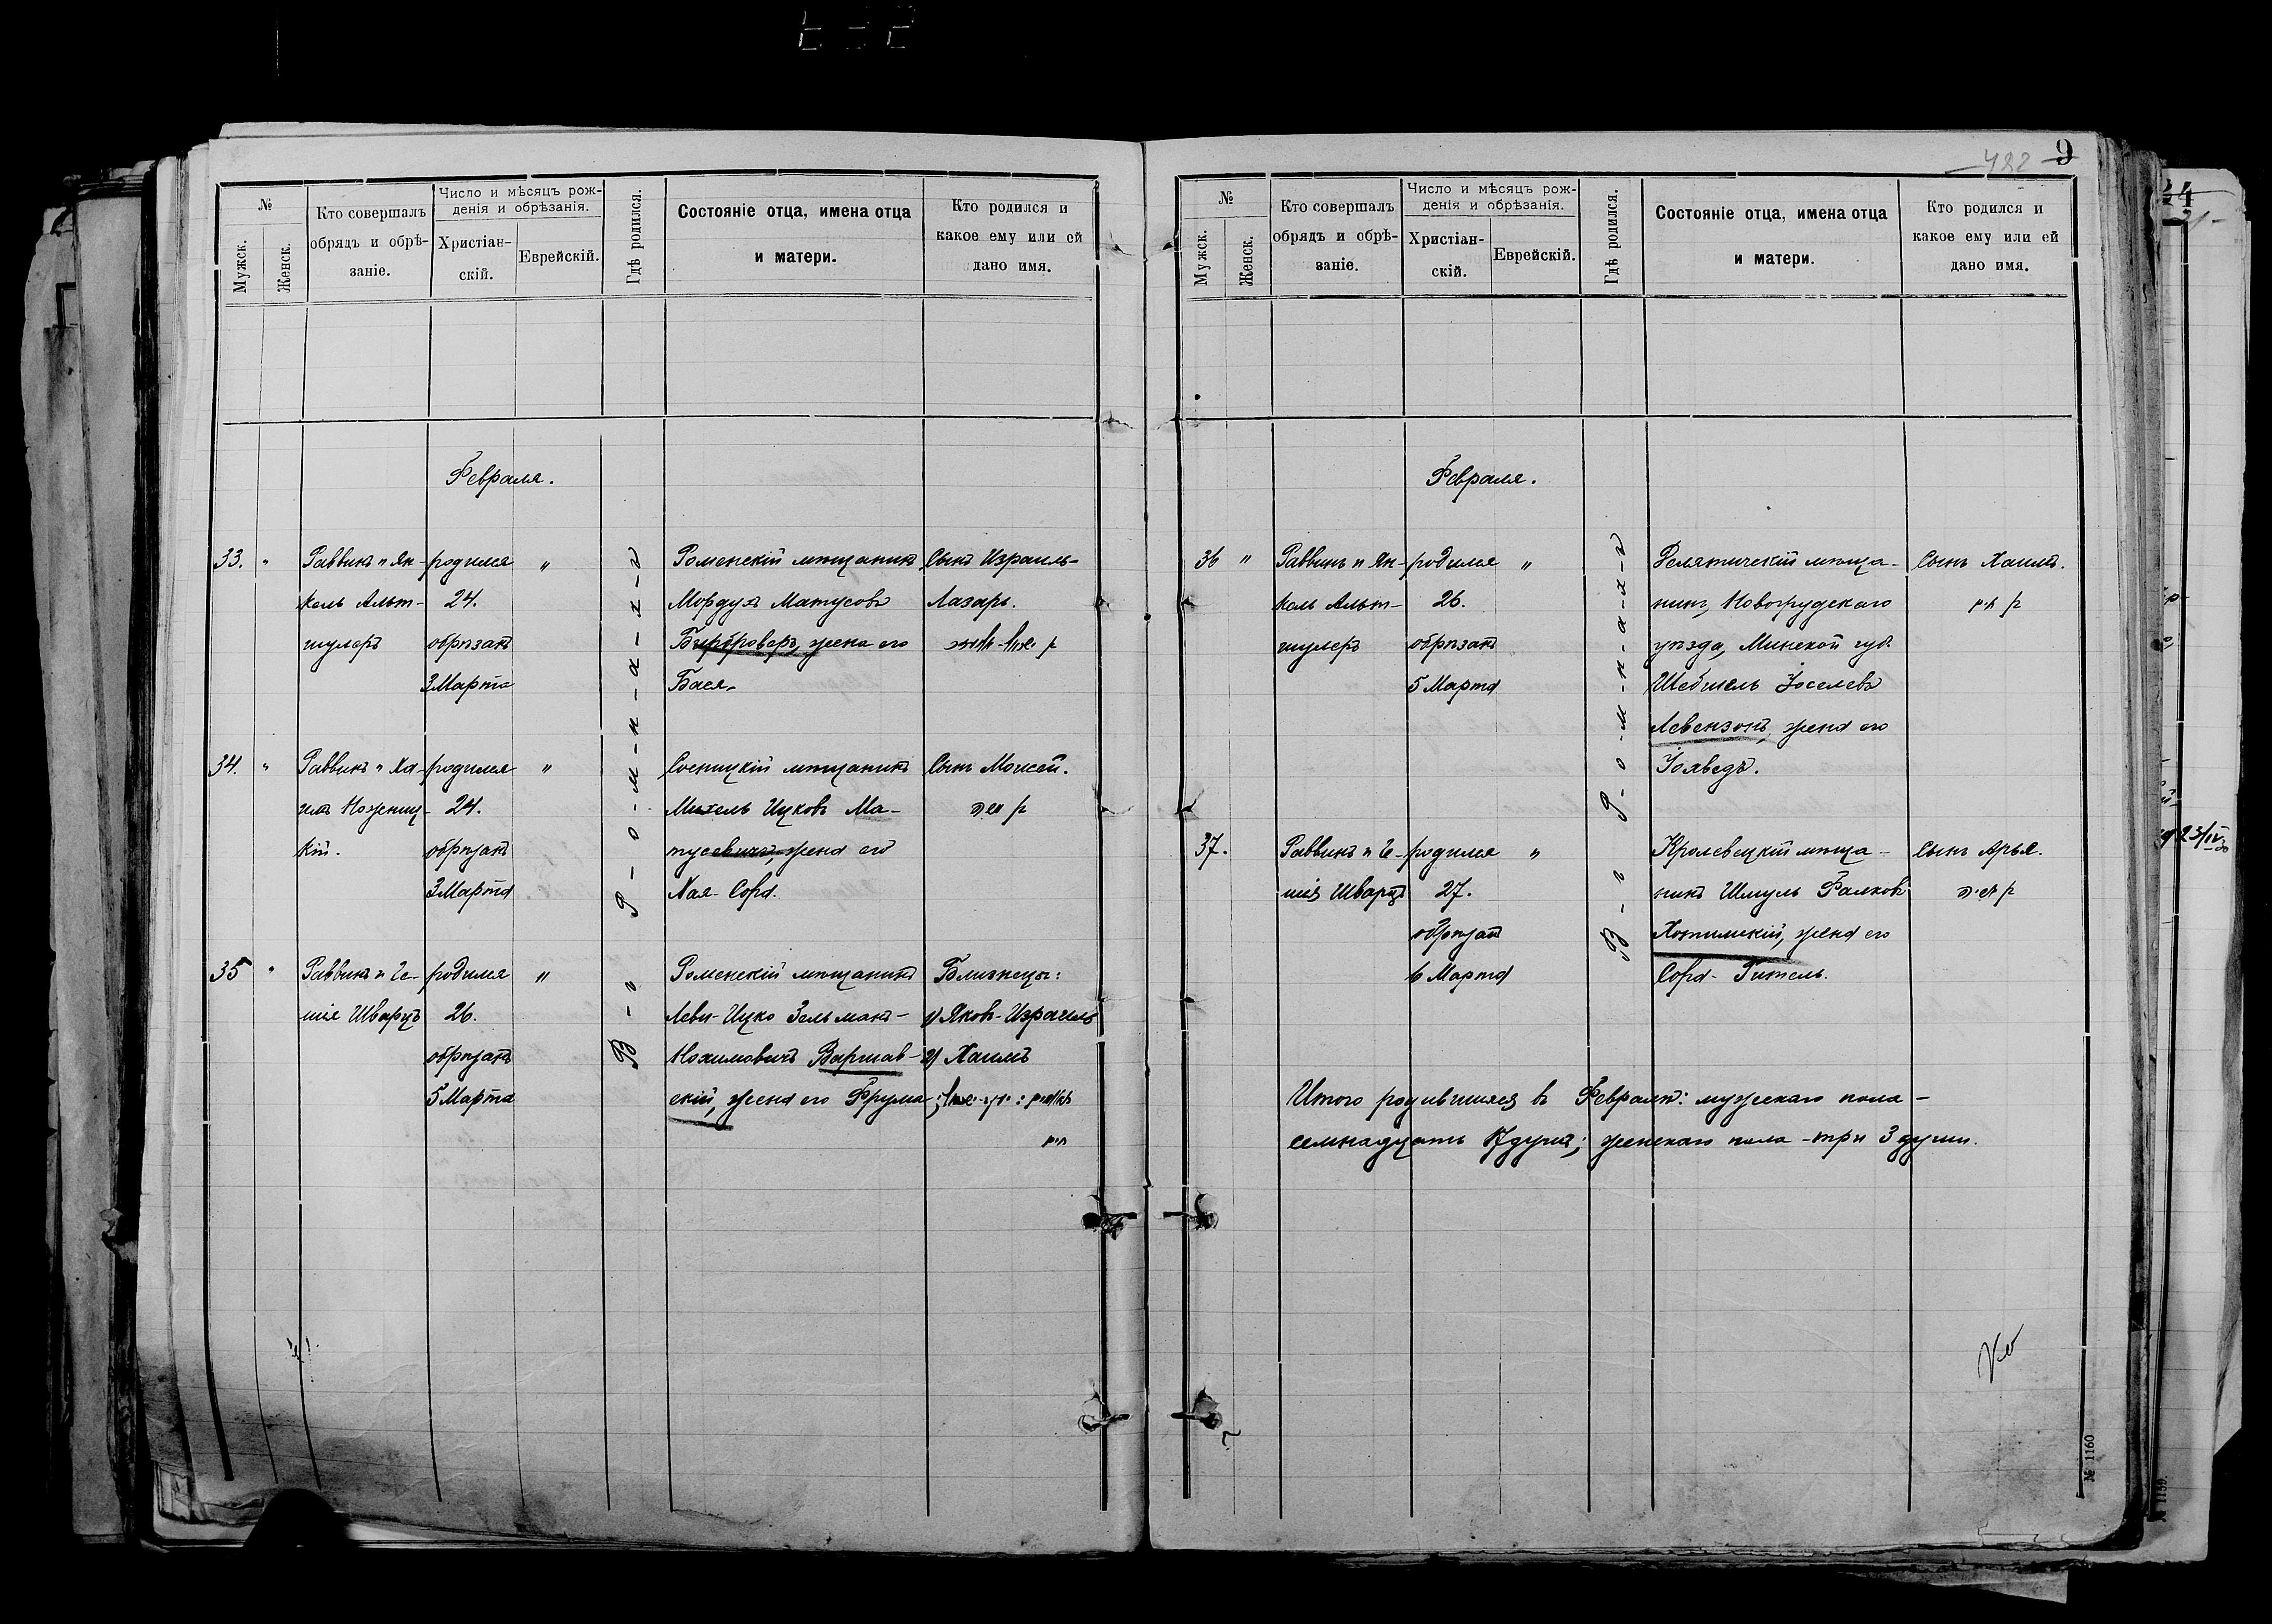 9
482
№
Мужск.
Женск.
Кто совершалъ
обрядъ и обрѣ-
заніе.
Число и мѣсяцъ рож-
денія и обрѣзанія.
Христіан-
скій.
Еврейскій.
Гдѣ родился.
Состояніе отца, имена отца
и матери.
Кто родился и
какое ему или ей
дано имя.
Февраля.
В - г Р - о - м - н - а - х - г
33. "
Раввинъ и Ян-
кель Альт-
шулеръ
родился
24.
обрѣзанъ
3 Марта
"
Роменскій мѣщанинъ
Мордухъ Матусовъ
жена его
Бася.
Сынъ Израиль-
Лазарь.
34. "
Раввинъ и Ха-
имъ Ножениц-
кій.
родился
24.
обрѣзанъ
3 Марта
"
Сосницкій мѣщанинъ
Михель Ицковъ Ма-
тусевичъ, жена его
Хая-Сора.
Сынъ Моисей.
35 "
Раввинъ и Ге-
шія Шварцъ
родился
26.
обрѣзанъ
5 Марта
"
Роменскій мѣщанинъ
Леви-Ицко Зельманъ-
Нохимовичъ Варшав-
скій, жена его Фрума
Близнецы:
1) Яковъ-Израиль
2) Хаимъ
№
Мужск.
Женск.
Кто совершалъ
обрядъ и обрѣ-
заніе.
Число и мѣсяцъ рож-
денія и обрѣзанія.
Христіан-
скій.
Еврейскій.
Гдѣ родился.
Состояніе отца, имена отца
и матери.
Кто родился и
какое ему или ей
дано имя.
Февраля.
В - г Р - о - м - н - а - х - г
36 "
Раввинъ и Ян-
кель Альт-
шулеръ
родился
26.
обрѣзанъ
5 Марта
"
мѣща-
нинъ, Новогрудскаго
уѣзда, Минской губ.
Іоселевъ
Левензонъ, жена его
Іохведъ.
Сынъ Хаимъ.
37.
Раввинъ и Ге-
шія Шварцъ
родился
27.
обрѣзан
6 Марта
"
Кролевецкій мѣща-
нинъ Шмуль Фалковъ
Хотимскій, жена его
Сора-Гитель.
Сынъ Арья.
Итого родившихся въ Февралѣ: мужескаго пола -
семнадцать 17 душъ; женскаго пола - три 3 души.
№ 1160
№ 1159.